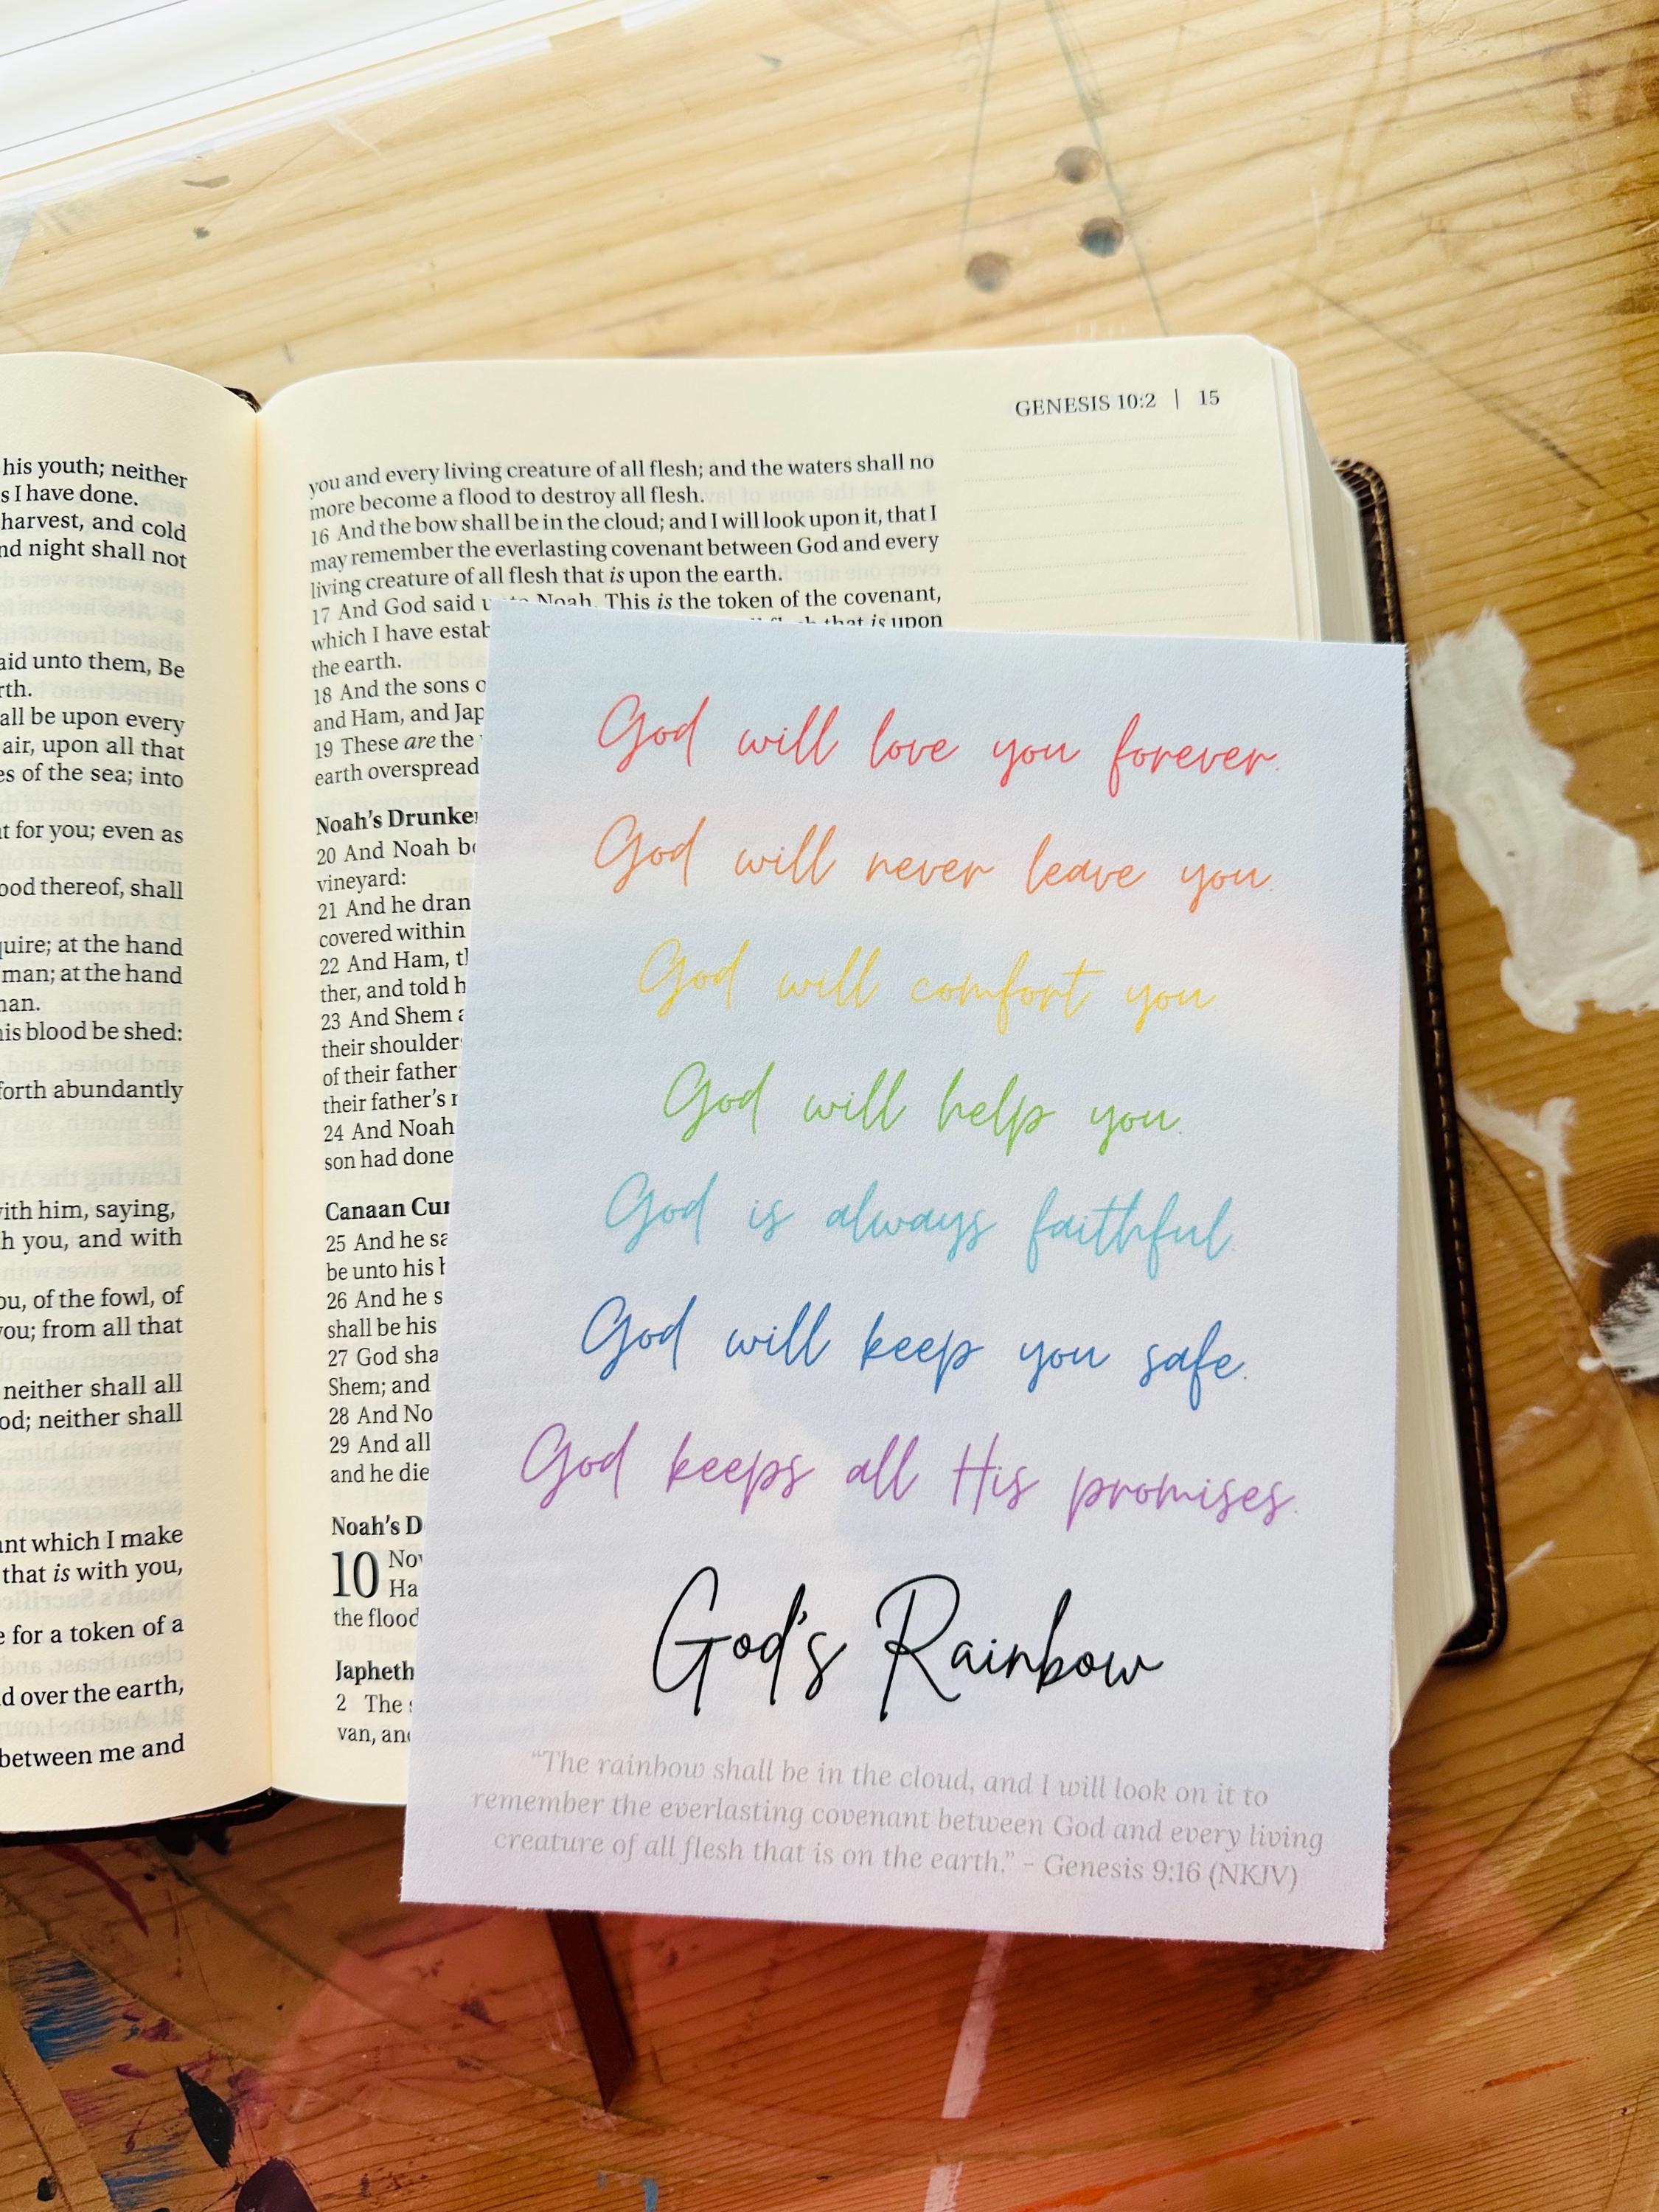 his youth; neither
s I have done.
harvest, and cold
nd night shall not
aid unto them, Be
rth.
all be upon every
air, upon all that
es of the sea; into
t for you; even as
ood thereof, shall
quire; at the hand
man; at the hand
nan.
his blood be shed:
forth abundantly
with him, saying,
h you, and with
ou, of the fowl, of
you; from all that
neither shall all
od; neither shall
ant which I make
that is with you,
e for a token of a
d over the earth,
between me and
GENESIS 10:2 | 15
you and every living creature of all flesh; and the waters shall no
more become a flood to destroy all flesh.
16 And the bow shall be in the cloud; and I will look upon it, that I
may remember the everlasting covenant between God and every
living creature of all flesh that is upon the earth.
17 And God said unto Noah, This is the token of the covenant,
which I have estab that is upon
the earth.
18 And the sons o
and Ham, and Jap
19 These are the
earth overspread
Noah's Drunke
20 And Noah be
vineyard:
21 And he dran
covered within
22 And Ham, t
ther, and told h
23 And Shem a
their shoulder
of their father
their father's
24 And Noah
son had done
Canaan Cur
25 And he sa
be unto his
26 And he s
shall be his
27 God sha
Shem; and
28 And No
29 And all
and he die
Noah's D
10 Nov
Ha
the flood
Japheth
2 The
van, and
God will love you forever.
God will never leave you.
God will comfort you.
God will help you.
God is always faithful.
God will keep you safe.
God keeps all His promises.
God's Rainbow
"The rainbow shall be in the cloud, and I will look on it to
remember the everlasting covenant between God and every living
creature of all flesh that is on the earth." - Genesis 9:16 (NKJV)